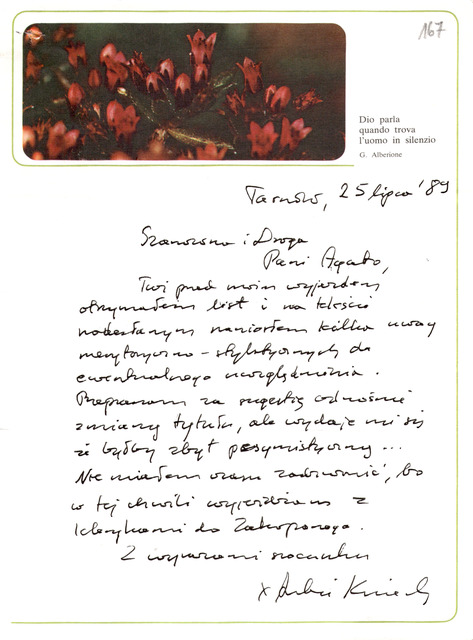 167
Dio parla
quando trova
l'uomo in silenzio
G. Alberione
Tarnów, 25 lipca '89
Szanowna i Droga
Pani Agato,
Tuż przed moim wyjazdem
otrzymałem list i na tekście
nadesłanym naniosłem kilka uwag
merytoryczno-stylistycznych do
ewentualnego uwzględnienia.
Przepraszam za sugestię odnośnie
zmiany tytułu, ale wydaje mi się
że byłby zbyt pesymistyczny...
Nie miałem czasu zadzwonić, bo
w tej chwili wyjeżdżam z
klerykami do Zakopanego.
Z wyrazami szacunku
x